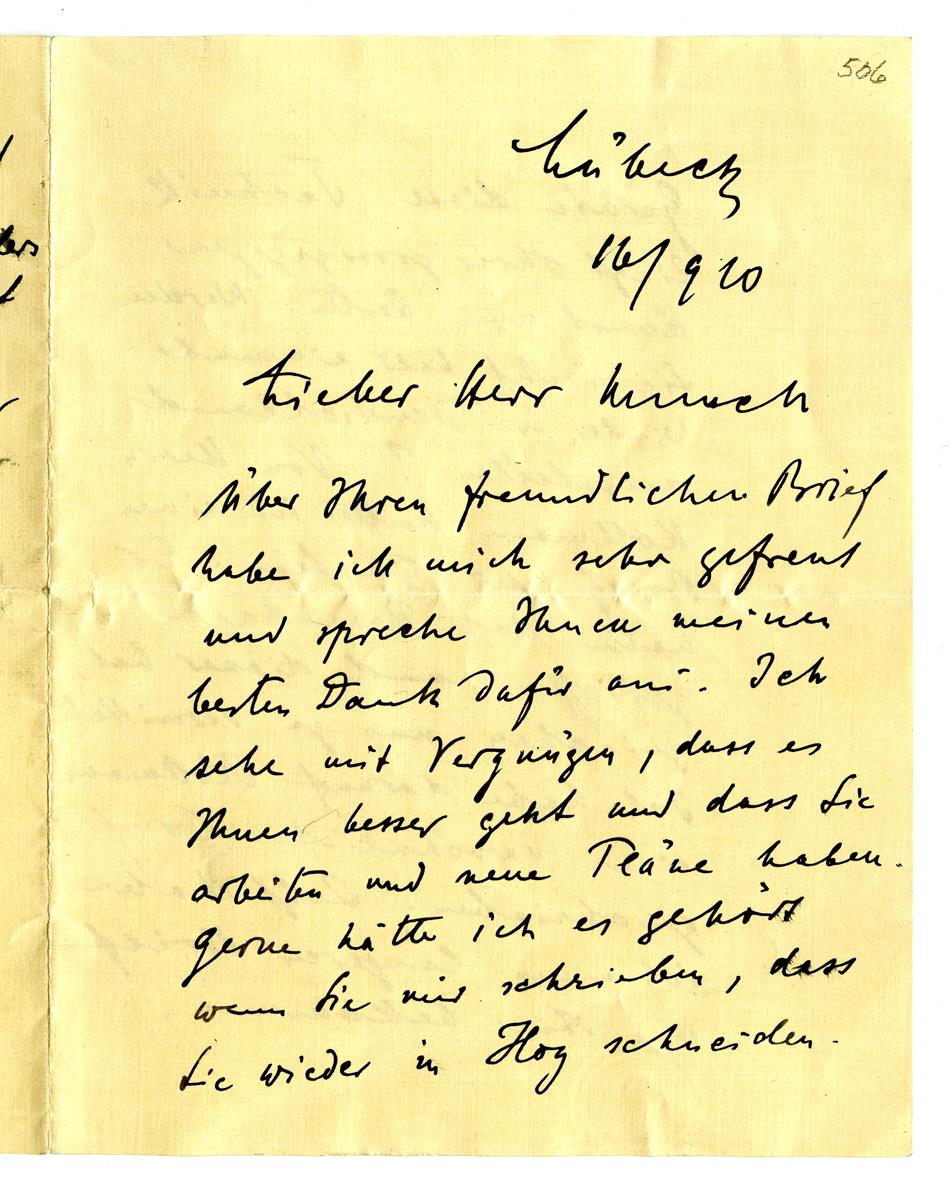 506
Lübeck
16/9 10
Lieber Herr Munch
Über Ihren freundlichen Brief
habe ich mich sehr gefreut
und spreche Ihnen meinen
besten Dank dafür aus. Ich
sehe mit Vergnügen, dass es
Ihnen besser geht und dass Sie
arbeiten und neue Pläne haben.
Gerne hätte ich es gehört
wenn Sie mir schrieben, dass
Sie wieder in Holz schneiden.